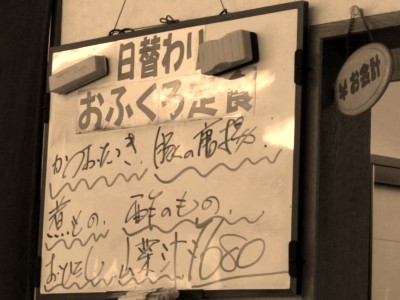 日替わり
おふくろ定食
かつおたたき、豚の唐揚、
煮もの、酢のもの、
おひたし、山菜汁 ¥680
¥お会計